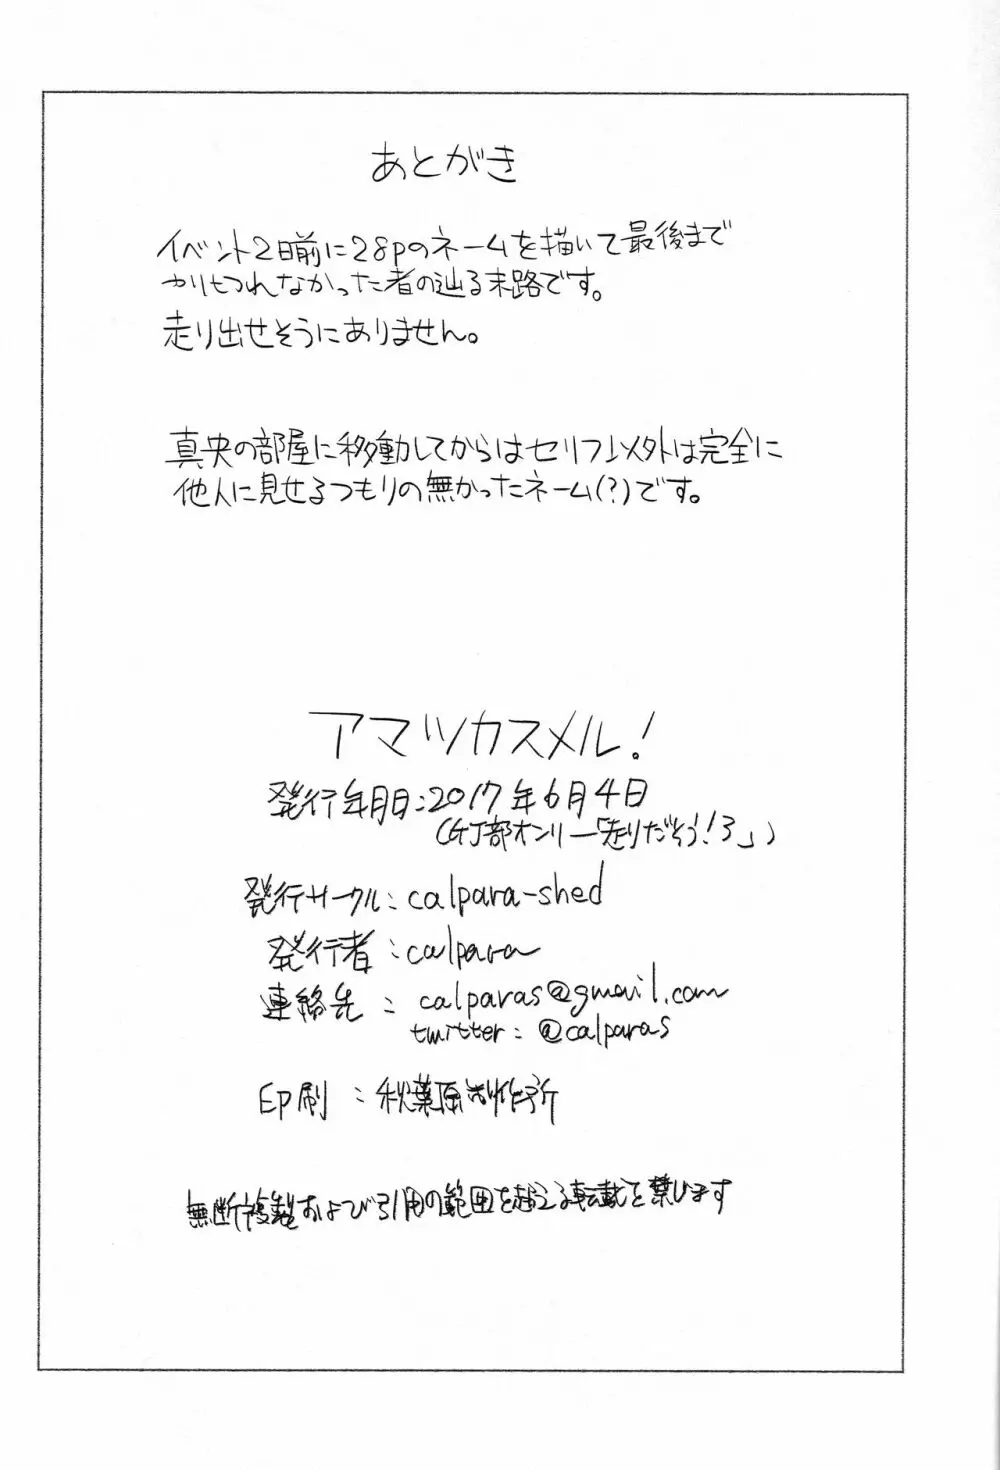 あとがき
イベント2日前に28Pのネームを描いて最後まで
やりきれなかった者の辿る末路です。
走り出せそうにありません。
真央の部屋に移動してからはセリフ以外は完全に
他人に見せるつもりの無かったネーム(?)です。
アマツカスメル!
発行年月日:2017年6月4日
(GJ部オンリー「走りだそう!3」)
発行サークル:calpara-shed
発行者:calpara
連絡先:calparas@gmail.com
twitter:@calparas
印刷:秋葉原制作所
無断複製および引用の範囲を超える転載を禁じます